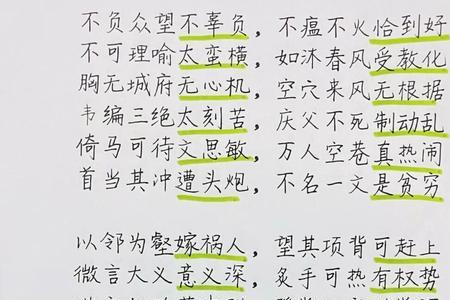 不负众望不辜负，不瘟不火恰到好
不可理喻太蛮横，如沐春风受教化
胸无城府无心机，空穴来风无根据
韦编三绝太刻苦，庆父不死制动乱
倚马可待文思敏，万人空巷真热闹
首当其冲遭头炮，不名一文是贫穷
以邻为壑嫁祸人，望其项背可赶上
微言大义意义深，炙手可热有权势